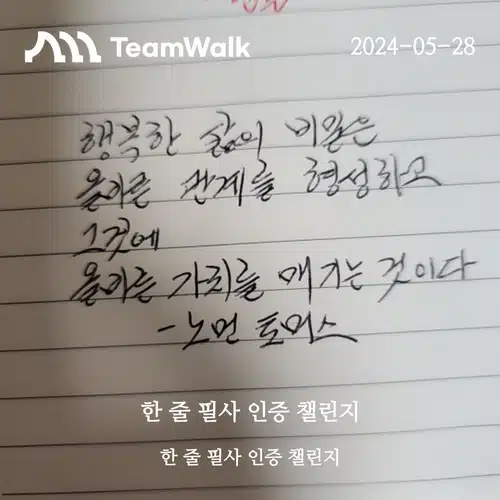 TeamWalk
2024-05-28
행복한 삶의 비밀은
올바른 관계를 형성하고
그것에
올바른 가치를 매기는 것이다
- 노먼 토머스
한 줄 필사 인증 챌린지
한 줄 필사 인증 챌린지